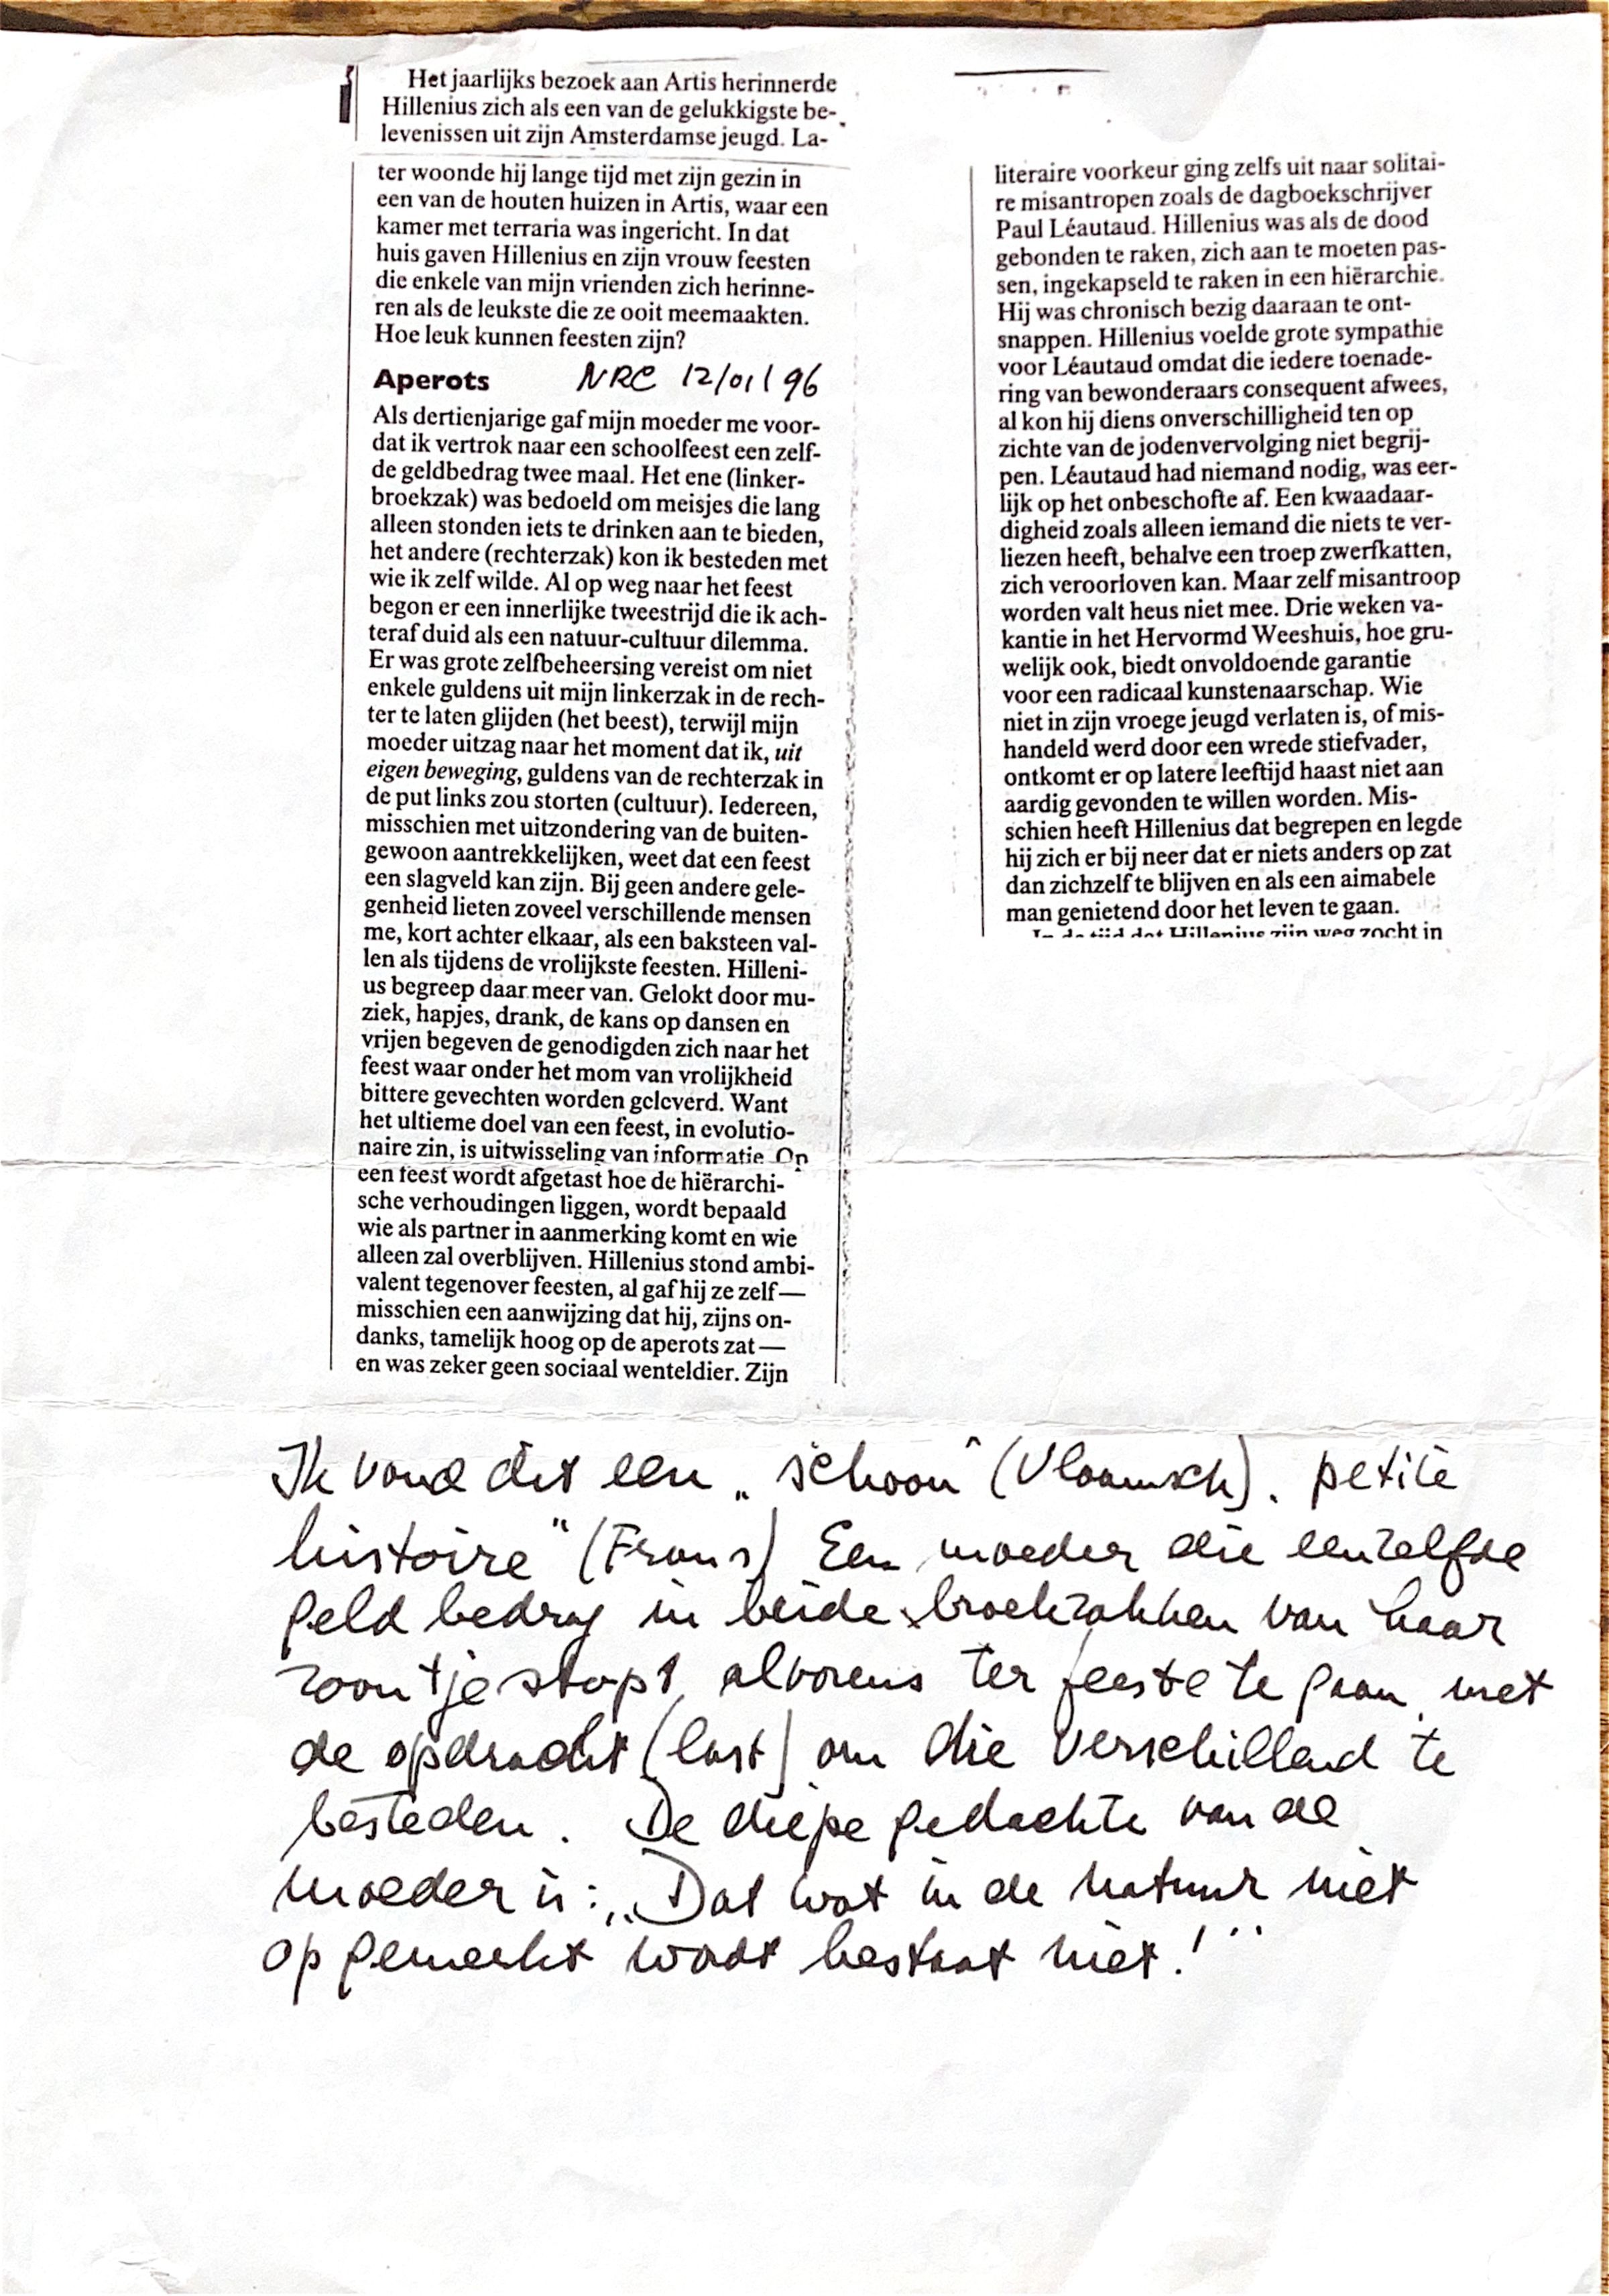 Het jaarlijks bezoek aan Artis herinnerde
Hillenius zich als een van de gelukkigste be-
levenissen uit zijn Amsterdamse jeugd. La-
ter woonde hij lange tijd met zijn gezin in
een van de houten huizen in Artis, waar een
kamer met terraria was ingericht. In dat
huis gaven Hillenius en zijn vrouw feesten
die enkele van mijn vrienden zich herinne-
ren als de leukste die ze ooit meemaakten.
Hoe leuk kunnen feesten zijn?
Aperots NRC 12/01/96
Als dertienjarige gaf mijn moeder me voor-
dat ik vertrok naar een schoolfeest een zelf-
de geldbedrag twee maal. Het ene (linker-
broekzak) was bedoeld om meisjes die lang
alleen stonden iets te drinken aan te bieden,
het andere (rechterzak) kon ik besteden met
wie ik zelf wilde. Al op weg naar het feest
begon er een innerlijke tweestrijd die ik ach-
teraf duid als een natuur-cultuur dilemma.
Er was grote zelfbeheersing vereist om niet
enkele guldens uit mijn linkerzak in de rech-
ter te laten glijden (het beest), terwijl mijn
moeder uitzag naar het moment dat ik, uit
eigen beweging, guldens van de rechterzak in
de put links zou storten (cultuur). Iedereen,
misschien met uitzondering van de buiten-
gewoon aantrekkelijken, weet dat een feest
een slagveld kan zijn. Bij geen andere gele-
genheid lieten zoveel verschillende mensen
me, kort achter elkaar, als een baksteen val-
len als tijdens de vrolijkste feesten. Hilleni-
us begreep daar meer van. Gelokt door mu-
ziek, hapjes, drank, de kans op dansen en
vrijen begeven de genodigden zich naar het
feest waar onder het mom van vrolijkheid
bittere gevechten worden geleverd. Want
het ultieme doel van een feest, in evolutio-
naire zin, is uitwisseling van informatie. Op
een feest wordt afgetast hoe de hiërarchi-
sche verhoudingen liggen, wordt bepaald
wie als partner in aanmerking komt en wie
alleen zal overblijven. Hillenius stond ambi-
valent tegenover feesten, al gaf hij ze zelf —
misschien een aanwijzing dat hij, zijns on-
danks, tamelijk hoog op de aperots zat —
en was zeker geen sociaal wenteldier. Zijn
literaire voorkeur ging zelfs uit naar solitai-
re misantropen zoals de dagboekschrijver
Paul Léautaud. Hillenius was als de dood
gebonden te raken, zich aan te moeten pas-
sen, ingekapseld te raken in een hiërarchie.
Hij was chronisch bezig daaraan te ont-
snappen. Hillenius voelde grote sympathie
voor Léautaud omdat die iedere toenade-
ring van bewonderaars consequent afwees,
al kon hij diens onverschilligheid ten op
zichte van de jodenvervolging niet begrij-
pen. Léautaud had niemand nodig, was eer-
lijk op het onbeschofte af. Een kwaadaar-
digheid zoals alleen iemand die niets te ver-
liezen heeft, behalve een troep zwerfkatten,
zich veroorloven kan. Maar zelf misantroop
worden valt heus niet mee. Drie weken va-
kantie in het Hervormd Weeshuis, hoe gru-
welijk ook, biedt onvoldoende garantie
voor een radicaal kunstenaarschap. Wie
niet in zijn vroege jeugd verlaten is, of mis-
handeld werd door een wrede stiefvader,
ontkomt er op latere leeftijd haast niet aan
aardig gevonden te willen worden. Mis-
schien heeft Hillenius dat begrepen en legde
hij zich er bij neer dat er niets anders op zat
dan zichzelf te blijven en als een aimabele
man genietend door het leven te gaan.
In de tijd dat Hillenius zijn weg zocht in
Ik vond dit een „schoon" (Vlaamsch). petite
histoire" (Frans) Een moeder die eenzelfde
geld bedrag in beide broekzakken van haar
zoontje stopt, alvorens ter feeste te gaan, met
de opdracht (last) om die verschillend te
besteden. De diepe gedachte van de
moeder is: „Dat wat in de natuur niet
opgemerkt wordt bestaat niet!"